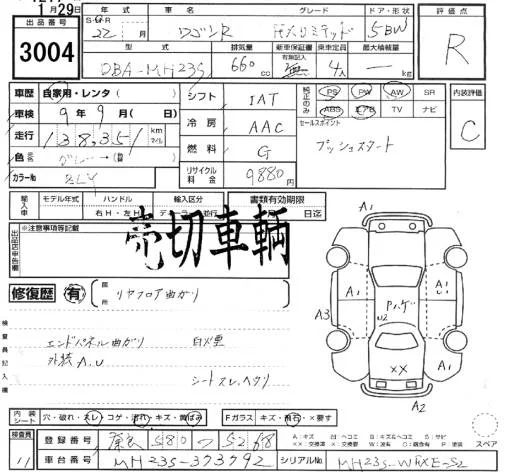 月29日
出品番号 3004
年式 22 月
車名 ワゴンR
グレード リミテッド
ドア・形状 5 BW
型式 DBA-MH23S
排気量 660 cc
新車保証書 有無記入 無
乗車定員 4人
最大積載量 — kg
評価点 R
車歴 自家用・レンタ( )
車検 9年 9月( 日)
走行 138,351 km マイル
色
カラーNo ZLY
シフト IAT
冷房 AAC
燃料 G
リサイクル料金 9880円
純正のみ PS PW AW SR
ABS エアB TV ナビ
セールスポイント
プッシュスタート
内装評価 C
輸入車 モデル年式 ハンドル 右H・左H 輸入区分 ディーラー・並行
書類有効期限 月 日迄
出品店申告欄
※注意事項等記載
売切車輌
修復歴 有 箇所 リヤフロア曲がり
検査員記入欄
エンドパネル曲がり
外装 A,U
シートスレ、ヘタリ
A1
A1 A1
A3 Pハゲ
U2
XX
A2
スペア
内装シート 穴・破れ・スレ・コゲ・汚れ・キズ・黄ばみ
Fガラス キズ・飛石・×要す
A:キズ U:ヘコミ B:キズ&ヘコミ S:サビ
検査員 11
登録番号 580 5268
車台番号 MH23S-373792
シリアルNo